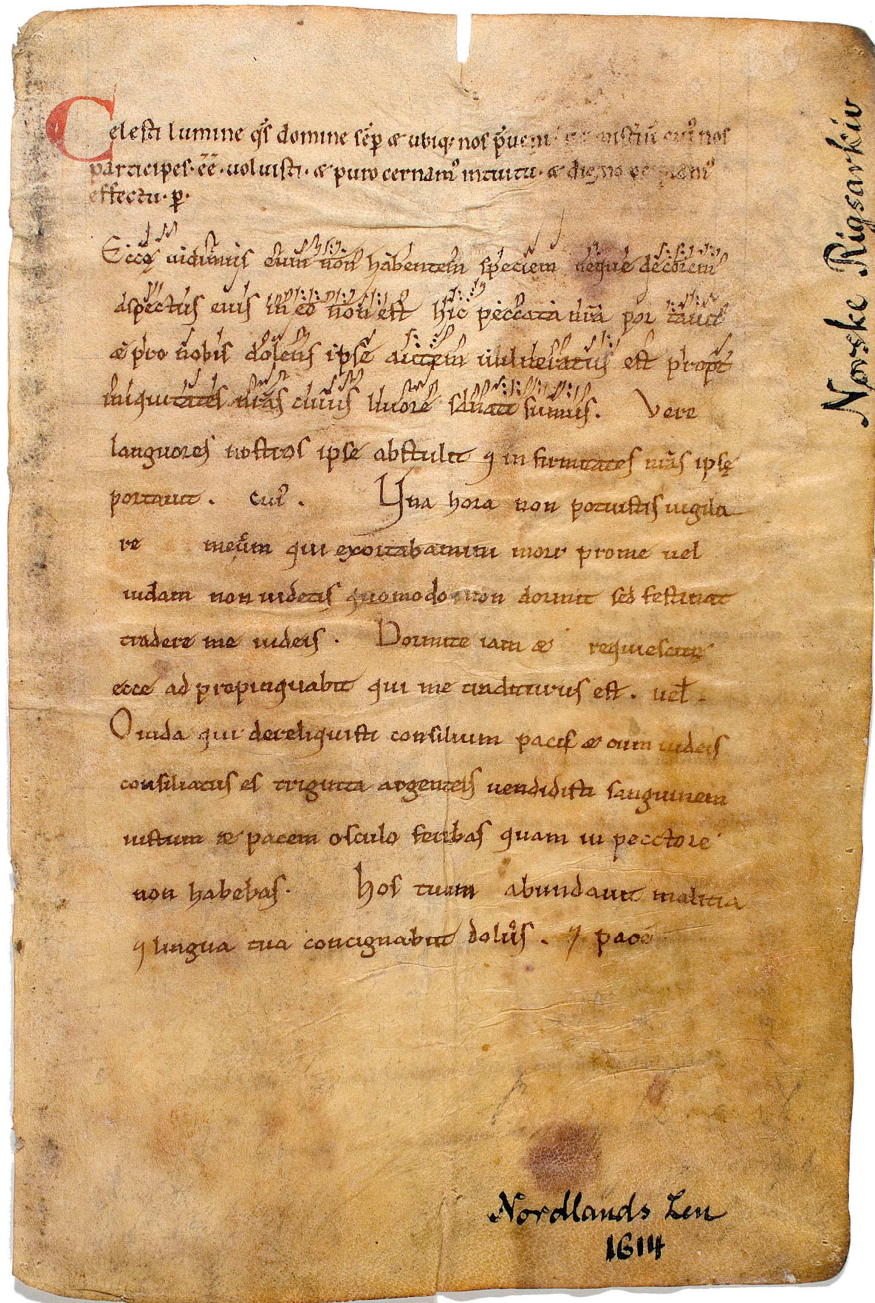 Celesti lumine qs̄ domine sēp & ubiq; nos p̄ueni nos
participes · ēē · uoluisti · & puro cernam᷒ intuitu · & digno
effectu · p̱ ·
Ecce uidimus eum non habentem speciem neque decorem
aspectus eius in eo non est hic peccata nr̄a portauit
& pro nobis dolens ipse autem uulneratus est propt
iniquitates nr̄as cuius liuore sanati sumus . Vere
languores nostros ipse abstulit ⁊ infirmitates nr̄as ipse
portauit . cui᷒ . Vna hora non potuistis uigila
re mecum qui exortabamini mori pro me uel
iudam non uidetis quomodo non dormit sed festinat
tradere me iudeis . Dormite iam & requiescite
ecce ad propinquabit qui me traditurus est . uel .
O iuda qui dereliquisti consilium pacis & cum iudeis
consiliatus es triginta argenteis uendidisti sanguinem
iustum & pacem osculo ferebas quam in pecctore
non habebas · hos tuum abundauit malitia
⁊ lingua tua concignabat dolus . ⁊ pacē
Norske Rigsarkiv
Nordlands Len
1614